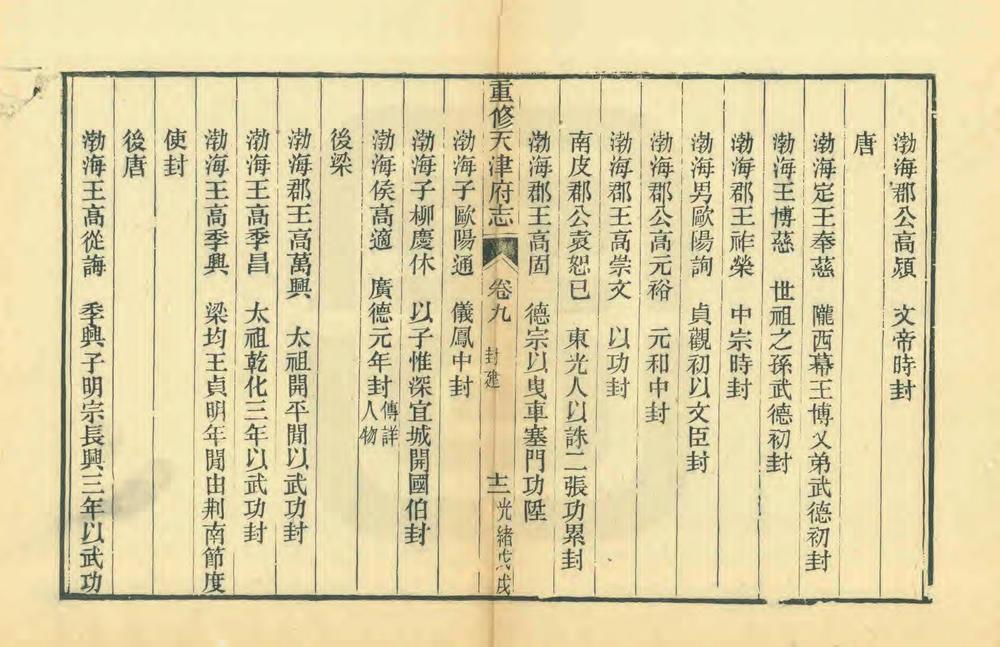 渤海郡公高熲　文帝時封
唐
渤海定王奉慈　隴西幕王博乂弟武德初封
渤海王博慈　世祖之孫武德初封
渤海郡王祚榮　中宗時封
渤海男歐陽詢　貞觀初以文臣封
渤海郡公高元裕　元和中封
渤海郡王高崇文　以功封
南皮郡公袁恕已　東光人以誅二張功累封
渤海郡王高固　德宗以曳車塞門功陞
重修天津府志　卷九　封建　十二　光緒戊戌
渤海子歐陽通　儀鳳中封
渤海子柳慶休　以子惟深宜城開國伯封
渤海侯高適　廣德元年封傳詳人物
後梁
渤海郡王高萬興　太祖開平閒以武功封
渤海王高季昌　太祖乾化三年以武功封
渤海王高季興　梁均王貞明年閒由荆南節度
使封
後唐
渤海王高從誨　季興子明宗長興三年以武功